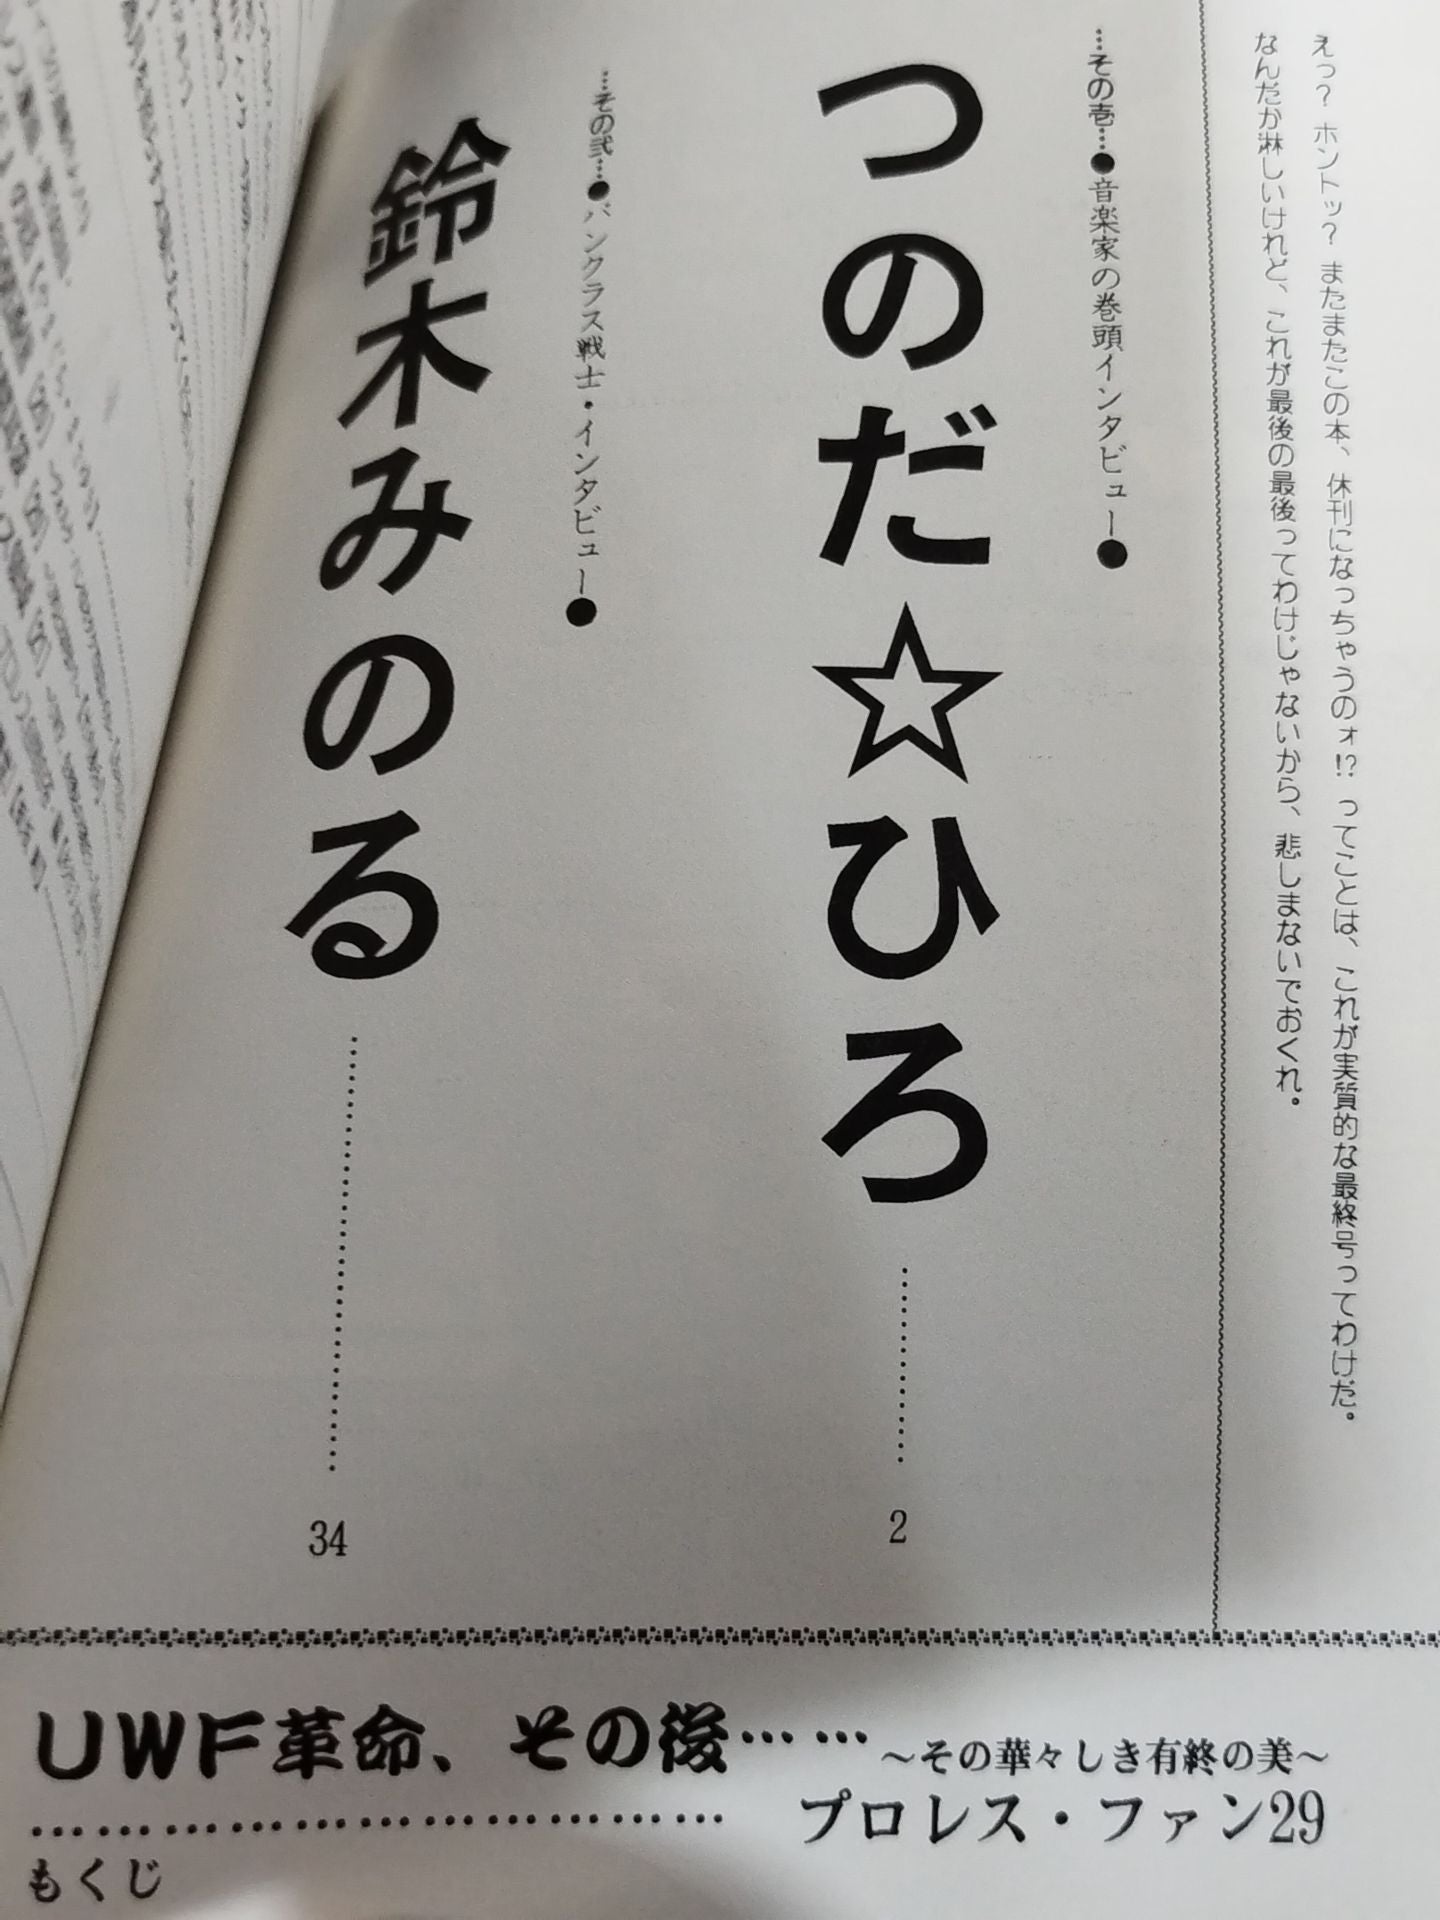 えっ？ ホントッ？ またまたこの本、休刊になっちゃうのォ!? ってことは、これが実質的な最終号ってわけだ。
なんだか淋しいけれど、これが最後の最後ってわけじゃないから、悲しまないでおくれ。
…その壱…●音楽家の巻頭インタビュー●
つのだ☆ひろ……………2
…その弐…●パンクラス戦士・インタビュー●
鈴木みのる……………………………34
UWF革命、その後……
～その華々しき有終の美～
……………………………………………………………
プロレス・ファン29
もくじ